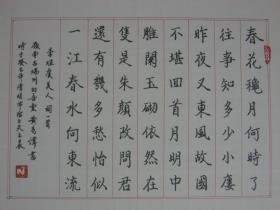 春花穐月何時了
往事知多少小廔
昨夜又東風故國
不堪回首月明中
雕闌玉砌依然在
隻是朱顏改問君
還有幾多愁恰似
一江春水向東流
李煜虞美人 詞一首
嶺南古端州 書
時于癸巳年清明